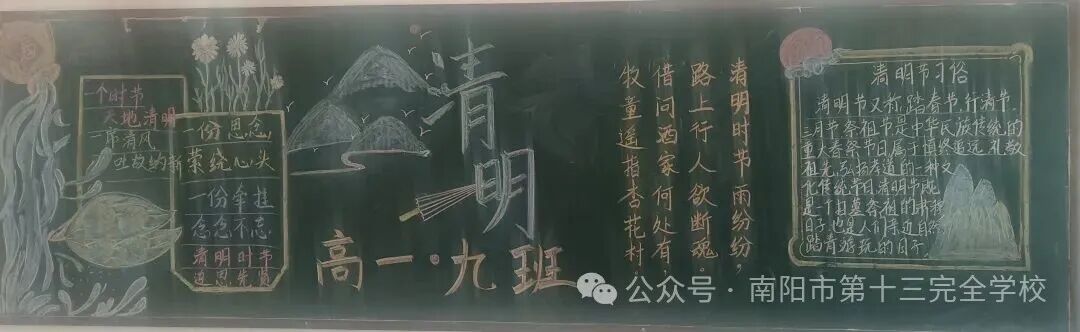 一个时节
天地清明
一席清风
吐故纳新
一份思念
萦绕心头
一份牵挂
念念不忘
清明时节
追思先贤
清明
高一·九班
清明时节雨纷纷,
路上行人欲断魂.
借问酒家何处有.
牧童遥指杏花村.
清明节习俗
清明节又称踏春节,行清节,
三月节祭祖节是中华民族传统的
重大春祭节日属于慎终追远、礼敬
祖先,弘扬孝道的一种文
化传统节日清明节既
是扫墓祭祖的
日子,也是人们亲近自然
踏青游玩的日子
公众号·南阳市第十三完全学校